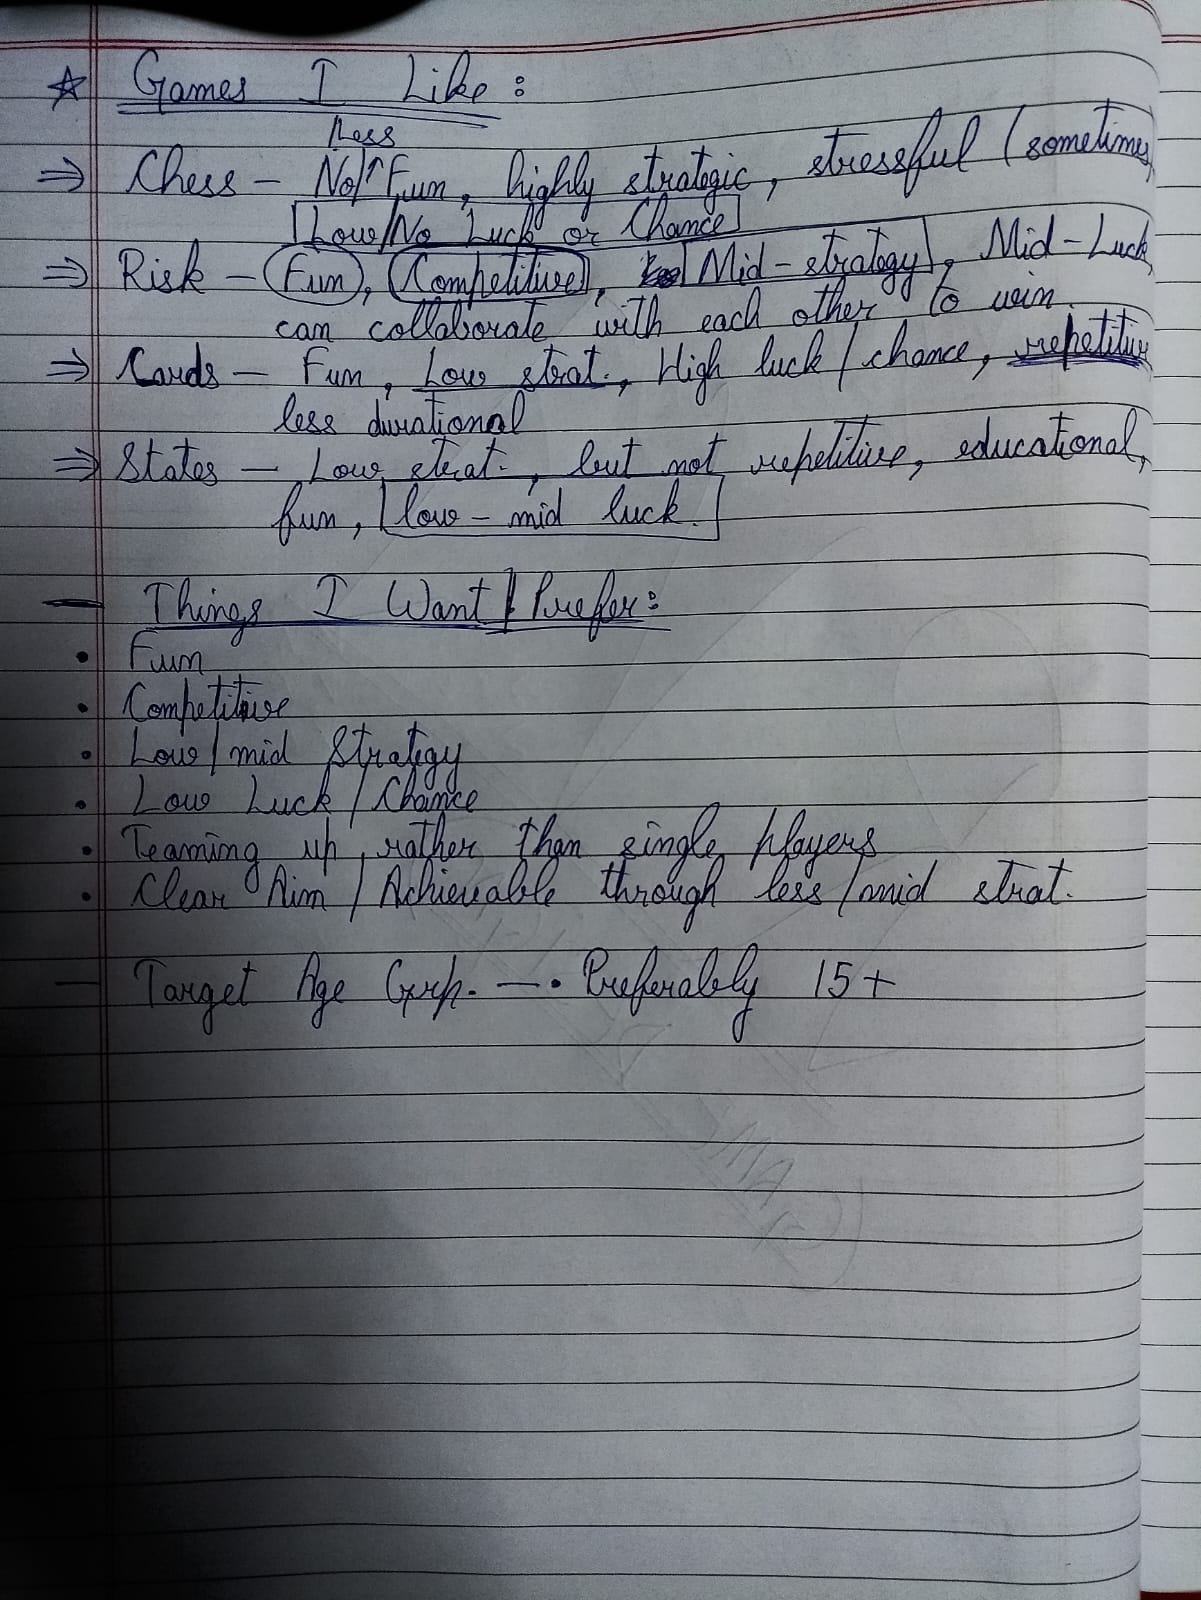 ☆ Games I Like :
Less
⇒ Chess - No/↑ Fun, highly strategic, stressful (sometimes
Low/No Luck or Chance
⇒ Risk - Fun, Competitive, Mid-strategy, Mid-Luck,
can collaborate with each other to win.
⇒ Cards - Fun, Low strat., High luck/chance, repetitive
less durational
⇒ States - Low strat., but not repetitive, educational,
fun, low-mid luck.
— Things I Want/Prefer:
• Fun
• Competitive
• Low/mid Strategy
• Low Luck/Chance
• Teaming up, rather than single players
• Clear Aim/Achievable through less/mid strat.
— Target Age Grp. —• Preferably 15+